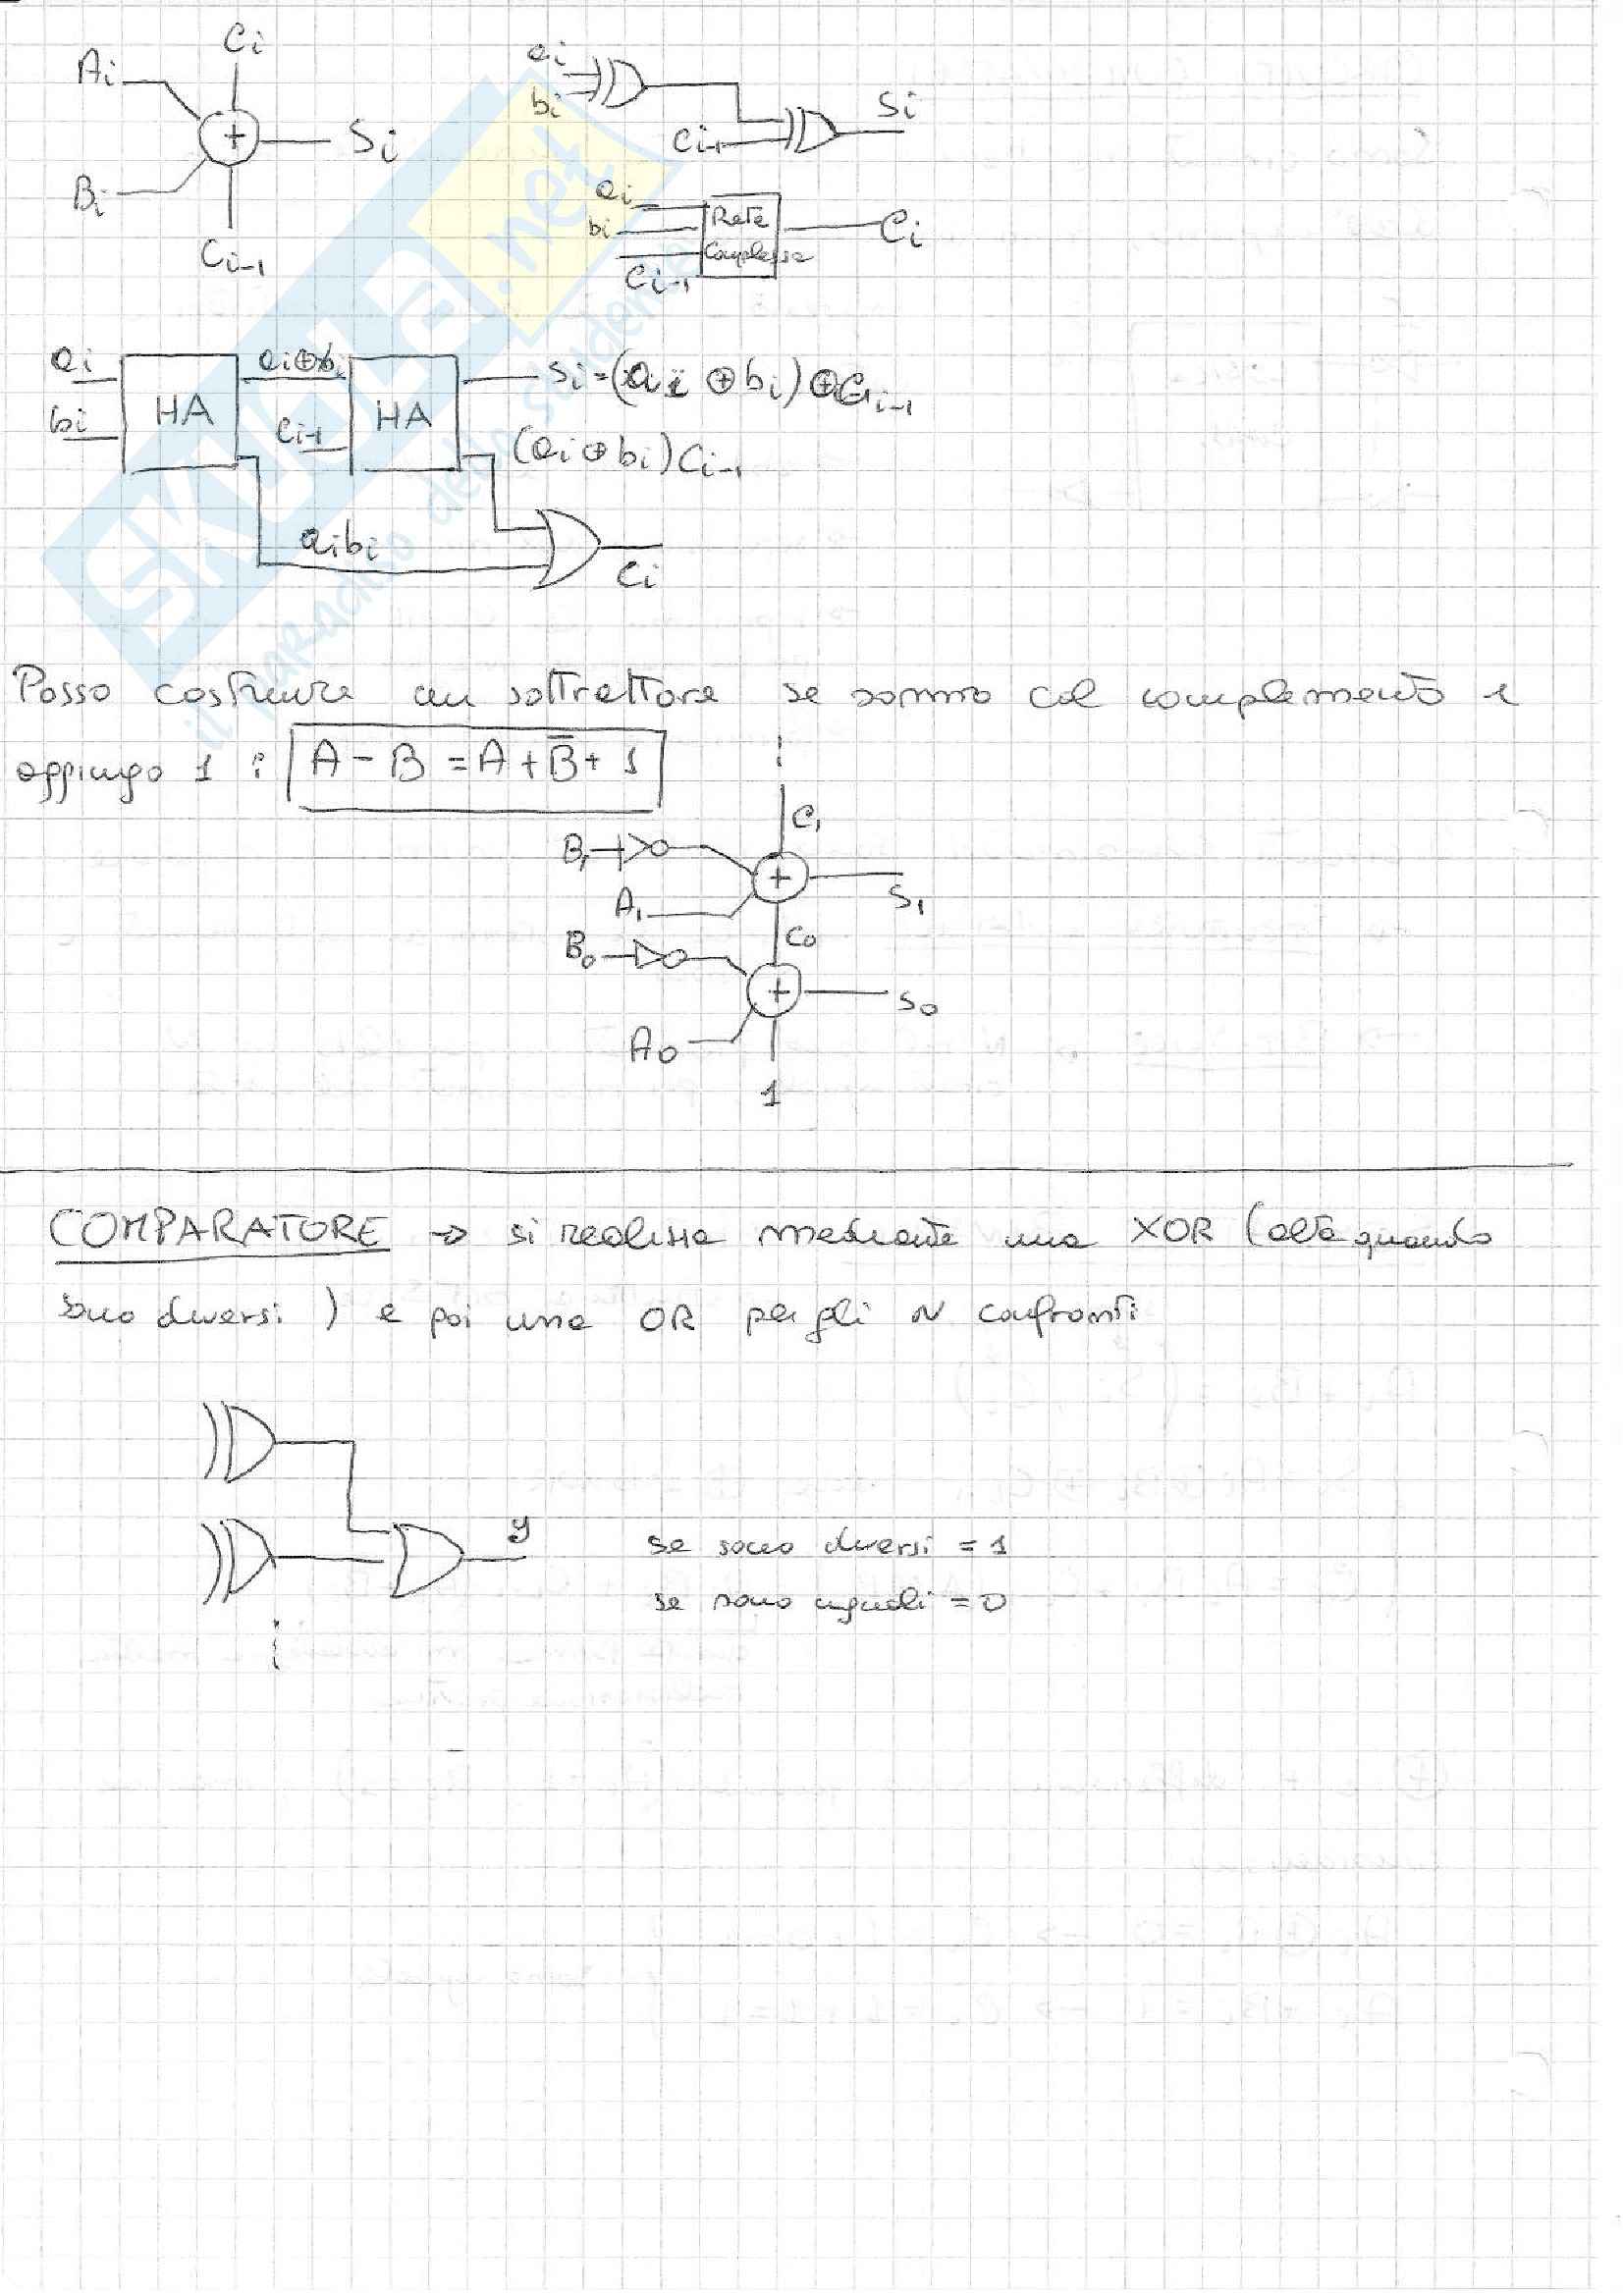 Ci
Ai
+
Si
Bi
Ci-1
ai
bi
Ci-1
Si
ai
bi
Ci-1
Rete
Complessa
Ci
ai
bi
HA
ai⊕bi
Ci-1
HA
Si=(ai ⊕ bi) ⊕Ci-1
(ai⊕bi)Ci-1
aibi
Ci
Posso costruire un sottrattore se sommo col complemento e
aggiungo 1 : A - B = A + B̅ + 1
C1
B1
+
S1
A1
C0
B0
+
S0
A0
1
COMPARATORE → si realizza mediante una XOR (alta quando
sono diversi ) e poi una OR per gli N confronti
y
se sono diversi = 1
se sono uguali = 0
SKUOLA.net
il paradiso dello studente